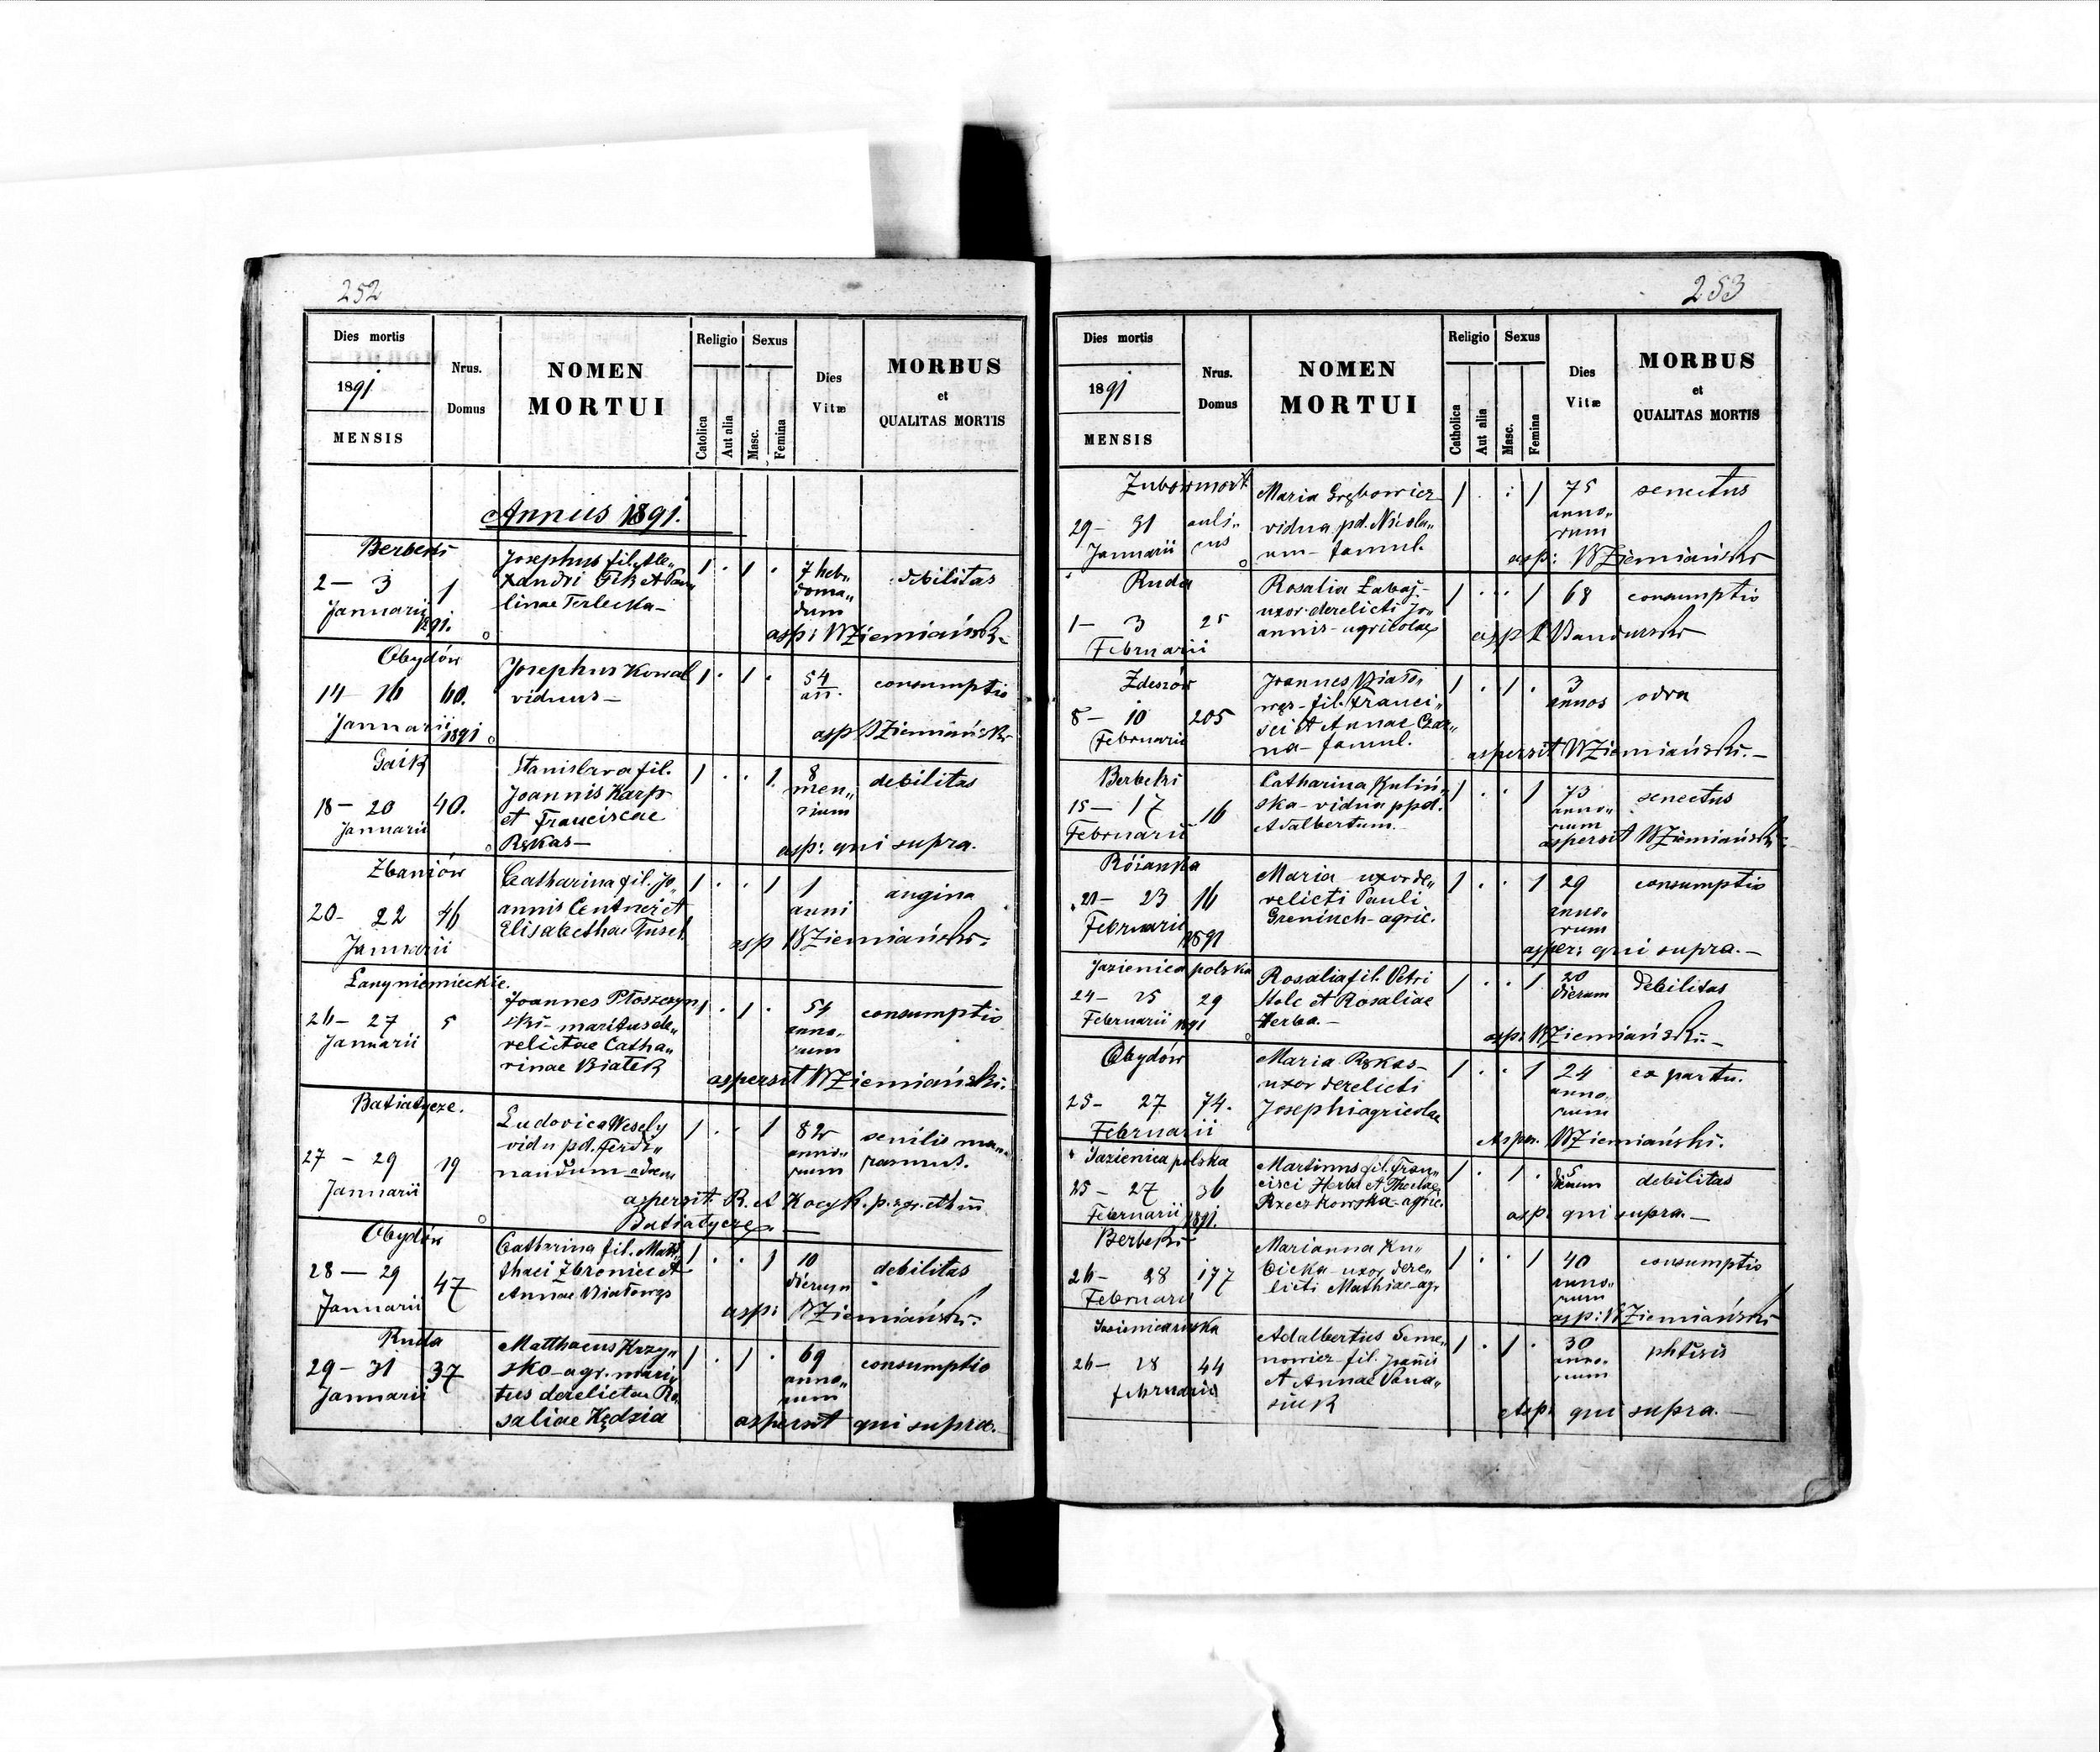 252
Dies mortis
1891
MENSIS
Nrus.
Domus
NOMEN
MORTUI
Religio
Sexus
Catolica
Aut alia
Masc.
Femina
Dies
Vitæ
MORBUS
et
QUALITAS MORTIS
Annus 1891.
Berbeki
2 — 3
Januarii
1891.
1
Josephus fil. Ale„
xandri Fik et Pau„
linae Terlecka —
1 . 1 .
7 heb„
doma„
dum
debilitas
asp: W Ziemiański
Obydów
14 16 60.
Januarii 1891
Josephus Kowal
viduus —
1 . 1 .
54
an.
consumptio
asp W Ziemiański
Gaik
18 — 20 40.
Januarii
Stanislava fil.
Joannis Karp
et Franciscae
Rękas —
1 . . 1.
8
men„
sium
debilitas
asp: qui supra.
Zbaniów
20 - 22 46
Januarii
Catharina fil. Jo„
annis Centner et
Elisabethae
1 . . 1
1
anni
angina
asp W Ziemiański.
Łany niemieckie.
26 — 27 5
Januarii
Joannes Płoszczyn
ski - maritus de„
relictae Catha„
rinae Białek
1 . 1 .
54
anno„
rum
consumptio
aspersit W Ziemiański.
Batiatycze.
27 - 29 19
Januarii
Ludovica Wesely
vidu pd. Ferdi„
nandum
1 . . 1
82
anno„
rum
senilis ma„
rasmus.
aspersit R. A Kocyk.
Batiatycze
Obydów
28 — 29 47
Januarii
Catharina fil. Mat„
thaei Zbroniec et
Annae Białowąs
1 . . 1
10
dierum
debilitas
asp: W Ziemiański.
Ruda
29 - 31 37
Januarii
Matthaeus Krzy„
sko - agr. mari„
tus derelictae Ro„
saliae Kędzia
1 . 1 .
69
anno„
rum
consumptio
aspersit qui supra.
253
Dies mortis
1891
MENSIS
Nrus.
Domus
NOMEN
MORTUI
Religio
Sexus
Catholica
Aut alia
Masc.
Femina
Dies
Vitæ
MORBUS
et
QUALITAS MORTIS
Zubowmost
29 - 31
Januarii
auli„
cus
Maria Grębowicz
vidua pd. Nicola„
um - famul.
1 . : 1
75
anno„
rum
senectus
asp: W Ziemiański
Ruda
1 - 3 25
Februarii
Rosalia Łabaj -
uxor derelicti Jo„
annis - agricolae
1 . . 1
68
consumptio
asp Bandurski
Zdeszów
8 - 10 205
Februarii
Joannes Biało„
wąs - fil. Franci„
sci et Annae Czar„
na - famul.
1 . 1 .
3
annos
odra
aspersit W Ziemiański. —
Berbeki
15 — 17 16
Februarii
Catharina Kuliń„
ska - vidua ppd.
Adalbertum.
1 . . 1
73
anno„
rum
senectus
aspersit W Ziemiański
Różanka
21 - 23 16
Februarii 1891
Maria uxor de„
relicti Pauli
Greniuch - agric.
1 . . 1
29
anno„
rum
consumptio
asper: qui supra. —
Jazienica polska
24 - 25 29
Februarii 1891
Rosalia fil. Petri
Stolc et Rosaliae
Herba. —
1 . . 1
20
dierum
debilitas
asp: W Ziemiański. -
Obydów
25 - 27 74.
Februarii
Maria Rękas -
uxor derelicti
Josephi agricolae
1 . . 1
24
anno„
rum
ex partu.
Asper. W Ziemiański.
Jazienica polska
25 - 27 36
Februarii 1891.
Martinus fil. Fran„
cisci Herba et Theclae
Rzeczkowska - agric.
1 . 1 .
5
dierum
debilitas
asp. qui supra. —
Berbeki
26 - 28 177
Februarii
Marianna Ku„
bicka - uxor dere„
licti Mathiae - agr
1 . . 1
40
anno„
rum
consumptio
asp: W Ziemiański
Jazienica ruska
26 - 28 44
februarii
Adalbertus Seme„
nowicz fil. Joañis
et Annae Pana„
siuk
1 . 1 .
30
anno„
rum
phtisis
Asp. qui supra. —